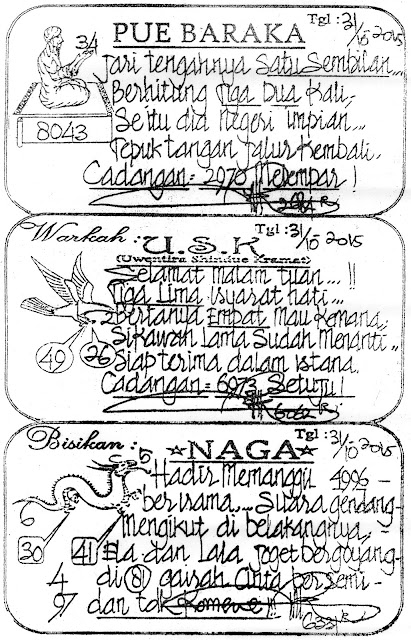 PUE BARAKA
Tgl : 31/10 2015
34
8043
Jari tengahnya Satu Sembilan...
Berhitung Tiga Dua Kali,
Se'itu dia Negeri Impian...
Tepuk tangan Jalur Kembali.
Cadangan = 2970 Melempar !
Warkah :
U.S.K
Tgl : 31/10 2015
(Uwentira Shindue Kramat)
Selamat malam tuan ... !!
Tiga Lima Isyarat hati ...
Bertanya Empat Mau Kemana,
Sikawan Lama Sudah Menanti ..
Siap terima dalam istana.
49 26
Cadangan = 6973 Setuju !
Bisikan :
NAGA
Tgl : 31/10 2015
Hadir Memanggil 4996 -
ber irama.... Suara gendang -
Mengikut di belakangnya, -
30 41
Ela dan Lala Joget bergoyang -
4
di 81 gairah Cinta bersemi -
97
dan tak